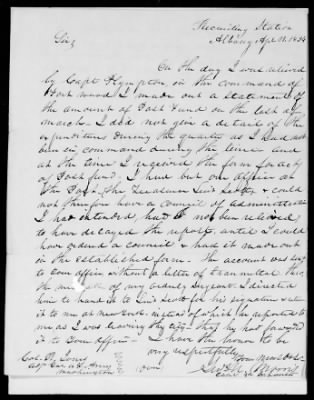 Recruiting Station
Albany Apl 11. 1834
Sir,
On the day I was relieved
by Capt Plympton in the command of
Fort Wood I made out a statement of
the amount of Post Fund on the last of
March. I did not give a detail of the
expenditures during the quarter as I had not
been in command during the time and
at the time I received the form for acct
of Post fund, I had but one officer at
the Post, the Treasurer Lieut & could
not therefore have a council of administration
I had intended, had I not been relieved,
to have delayed the report, until I could
have ordered a council & had it made out
in the established form. The account was sent
to your office without a letter of transmittal thro'
the mistake of my orderly Sergeant. I directed
him to hand it to Lieut for his signature & set
it to me at New York. instead of which he reported to
me as I was leaving the city that he had forwarded
it to your office. I have the honor to
be very respectfully
Your Most Obt
Col. R. Jones
Adjt Genl U.S. Army
Washington